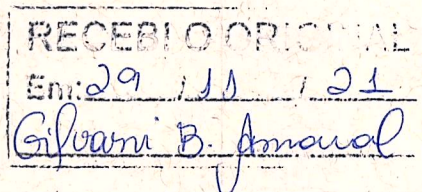 RECEBI O ORIGINAL
Em: 29 / 11 / 21
Gilvani B. Amaral